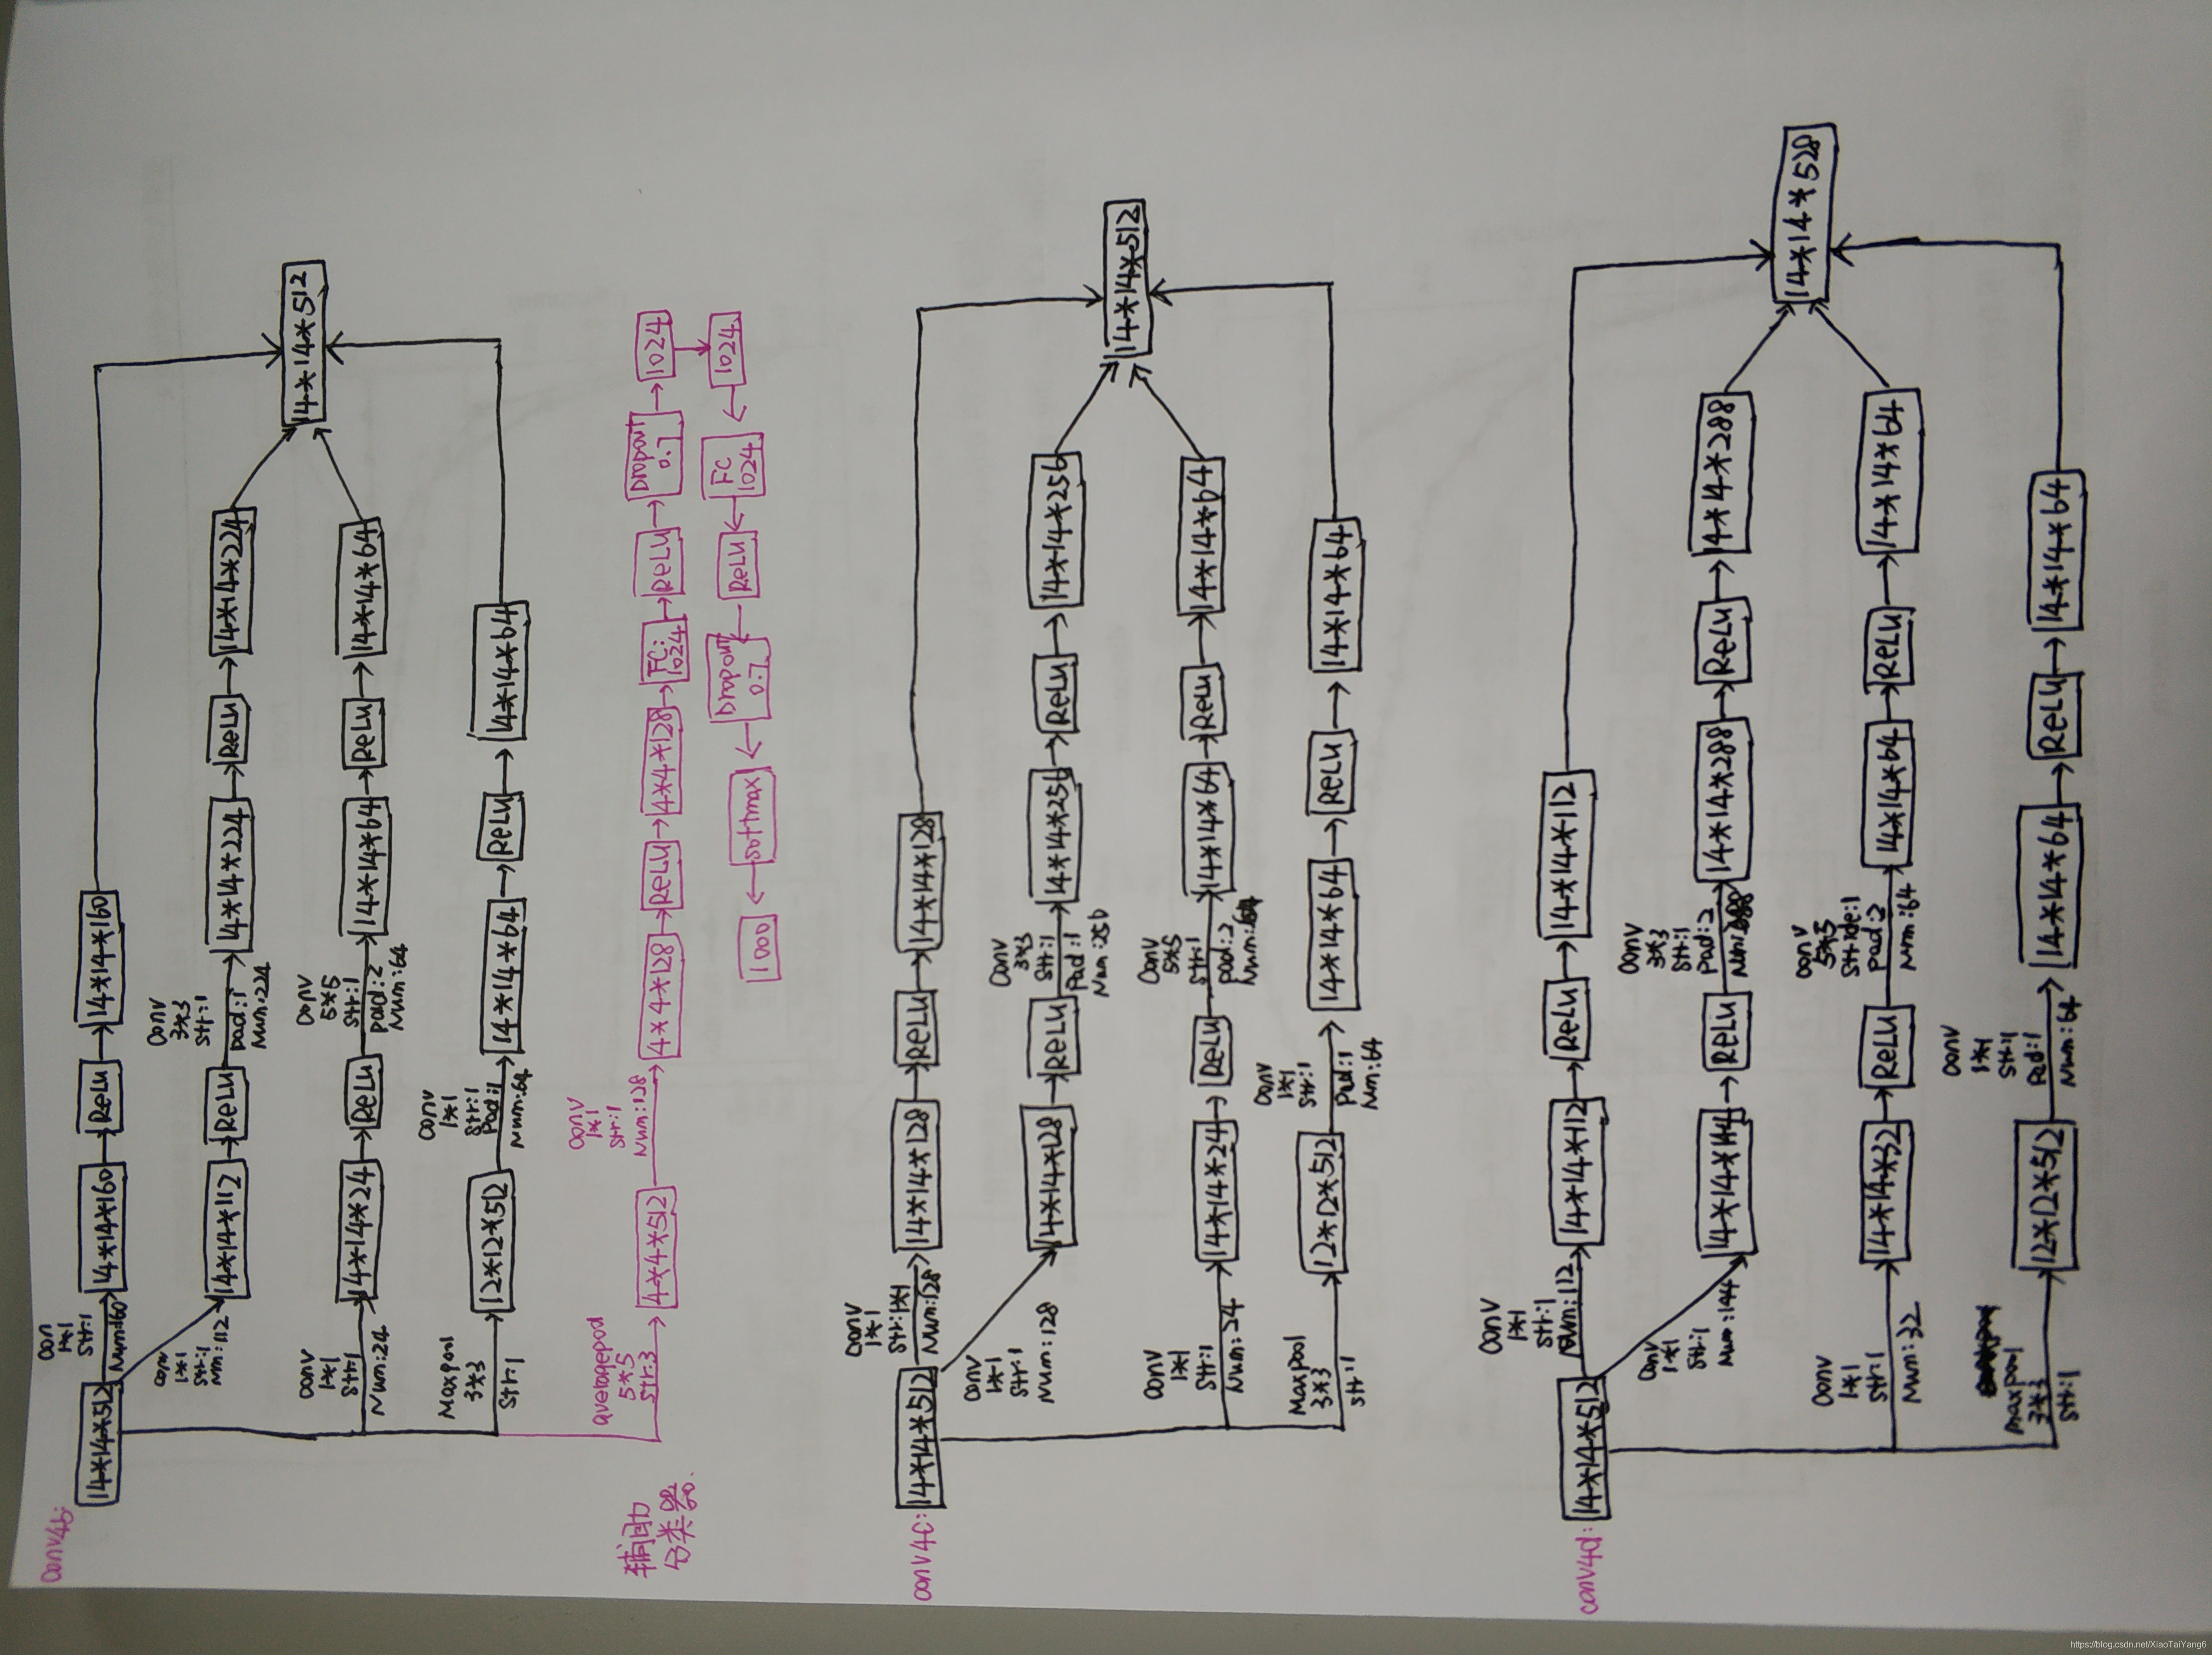 conv4b:
14*14*512
Conv
1*1
Str:1
Num:160
14*14*160
ReLU
14*14*160
conv
1*1
Str:1
Num:112
14*14*112
ReLU
Conv
3*3
Str:1
pad:1
Num:224
14*14*224
ReLU
14*14*224
Conv
1*1
Str:1
Num:24
14*14*24
ReLU
Conv
5*5
Str:1
pad:2
Num:64
14*14*64
ReLU
14*14*64
Maxpool
3*3
Str:1
12*12*512
Conv
1*1
Str:1
Pad:1
Num:64
14*14*64
ReLU
14*14*64
14*14*512
辅助
分类器.
averagepool
5*5
Str:3
4*4*512
Conv
1*1
Str:1
Num:128
4*4*128
ReLU
4*4*128
FC:
1024
ReLU
Dropout
0.7
1024
1024
FC
1024
ReLU
Dropout
0.7
softmax
1000
conv4c:
14*14*512
Conv
1*1
Str:1*1
Num:128
14*14*128
ReLU
14*14*128
Conv
1*1
Str:1
Num:128
14*14*128
ReLU
Conv
3*3
Str:1
Pad:1
Num:256
14*14*256
ReLU
14*14*256
Conv
1*1
Str:1
Num:24
14*14*24
ReLU
Conv
5*5
Str:1
pad:2
Num:64
14*14*64
ReLU
14*14*64
Maxpool
3*3
Str:1
12*12*512
Conv
1*1
Str:1
Pad:1
Num:64
14*14*64
ReLU
14*14*64
14*14*512
conv4d:
14*14*512
Conv
1*1
Str:1
Num:112
14*14*112
ReLU
14*14*112
Conv
1*1
Str:1
Num:144
14*14*144
ReLU
Conv
3*3
Str:1
Pad:2
Num:288
14*14*288
ReLU
14*14*288
Conv
1*1
Str:1
Num:32
14*14*32
ReLU
Conv
5*5
Stride:1
Pad:2
Num:64
14*14*64
ReLU
14*14*64
maxpool
3*3
Str:1
12*12*512
Conv
1*1
Str:1
Pad:1
Num:64
14*14*64
ReLU
14*14*64
14*14*528
https://blog.csdn.net/XiaoTaiYang6